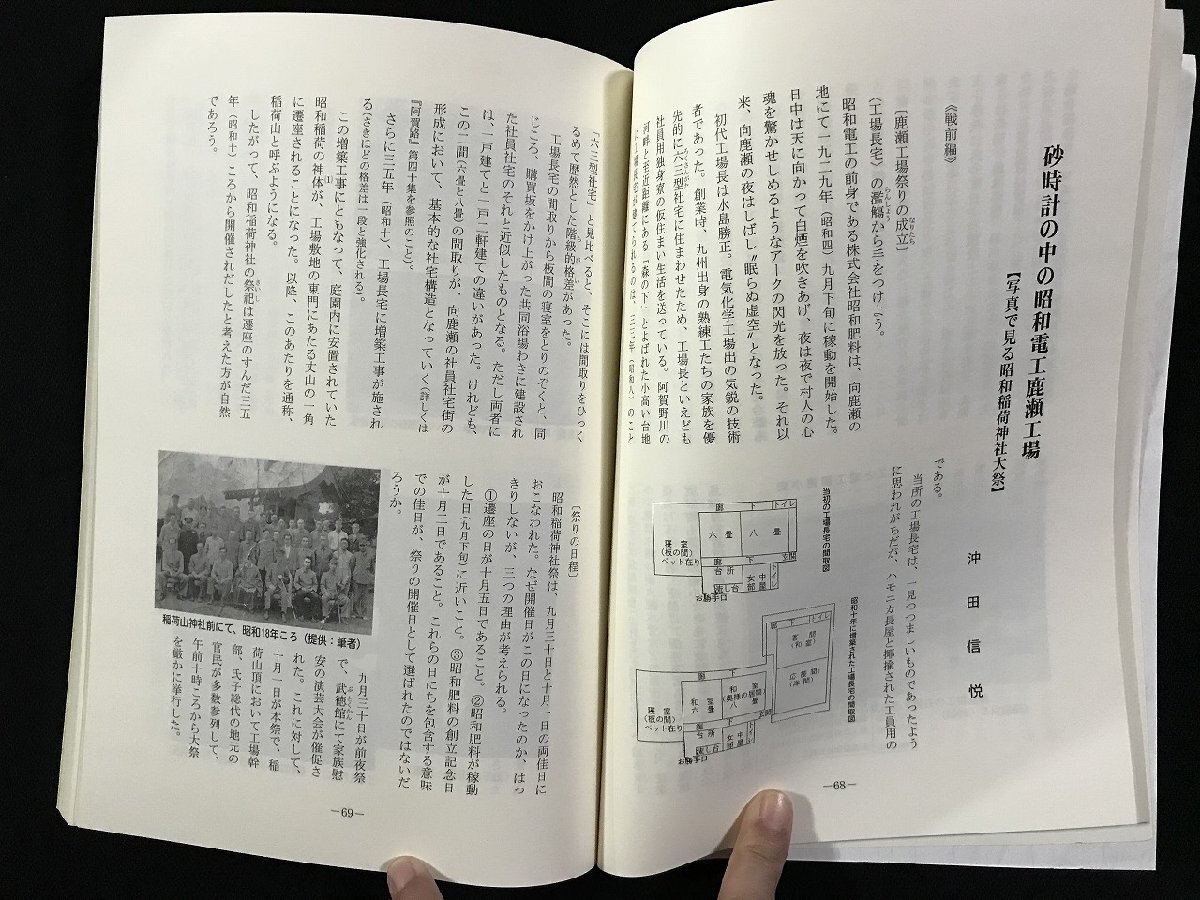 砂時計の中の昭和電工鹿瀬工場
【写真で見る昭和稲荷神社大祭】
沖田信悦
《戦前編》
〔鹿瀬工場祭りの成立〕
なりたち
〈工場長宅〉の濫觴から
らんしょう
昭和電工の前身である株式会社昭和肥料は、向鹿瀬の
地にて一九二九年（昭和四）九月下旬に稼動を開始した。
日中は天に向かって白煙を吹きあげ、夜は夜で村人の心
魂を驚かせしめるようなアークの閃光を放った。それ以
来、向鹿瀬の夜はしばし〝眠らぬ虚空〟となった。
初代工場長は水島勝正。電気化学工場出の気鋭の技術
者であった。創業時、九州出身の熟練工たちの家族を優
先的に六三型社宅に住まわせたため、工場長といえども
社員用独身寮の仮住まい生活を送っている。阿賀野川の
河畔と至近距離にある「森の下」とよばれた小高い台地
のこと
である。
当所の工場長宅は、一見つつましいものであったよう
に思われがちだが、ハモニカ長屋と揶揄された工員用の
当初の工場長宅の間取図
廊下
トイレ
八畳
八畳
寝室
（板の間）
ベット在り
廊下
玄関
台所
流し台
女中部屋
トイレ
お勝手口
昭和十年に増築された工場長宅の間取図
廊下
トイレ
客間
（和室）
応接間
（洋間）
廊下
寝室
（板の間）
ベット在り
和室
六畳
和室
（奥様の居間）
八畳
玄関
廊下
台所
流し台
女中部屋
お勝手口
―68―
「六三型社宅」と見比べると、そこには間取りをひっく
るめて歴然とした階級的格差があった。
工場長宅の間取りから板間の寝室をとりのぞくと、同
じころ、購買坂をかけ上がった共同浴場わきに建設され
た社員社宅のそれと近似したものとなる。ただし両者に
は、一戸建てと一戸二軒建ての違いがあった。けれども、
この二間（六畳と八畳）の間取りが、向鹿瀬の社員社宅街の
形成において、基本的な社宅構造となっていく（詳しくは
『阿賀路』第四十集を参照のこと）。
さらに三五年（昭和十）、工場長宅に増築工事が施され
る（さきにどの格差は一段と強化される。
この増築工事にともなって、庭園内に安置されていた
昭和稲荷の神体が、工場敷地の東門にあたる丈山の一角
(1)
に遷座されることになった。以降、このあたりを通称、
稲荷山と呼ぶようになる。
したがって、昭和稲荷神社の祭祀は遷座のすんだ三五
さいし
年（昭和十）ころから開催されだしたと考えた方が自然
であろう。
〔祭りの日程〕
昭和稲荷神社祭は、九月三十日と十月一日の両佳日に
おこなわれた。なぜ開催日がこの日になったのか、はっ
きりしないが、三つの理由が考えられる。
①遷座の日が十月五日であること。②昭和肥料が稼動
した日（九月下旬）に近いこと。③昭和肥料の創立記念日
が十月二日であること。これらの日にちを包含する意味
での佳日が、祭りの開催日として選ばれたのではないだ
ろうか。
稲荷山神社前にて、昭和18年ころ（提供：筆者）
九月三十日が前夜祭
で、武徳館にて家族慰
安の演芸大会が催促さ
れた。これに対して、
十月一日が本祭で、稲
荷山頂において工場幹
部、氏子総代の地元の
官民が多数参列して、
午前十時ころから大祭
を厳かに挙行した。
―69―